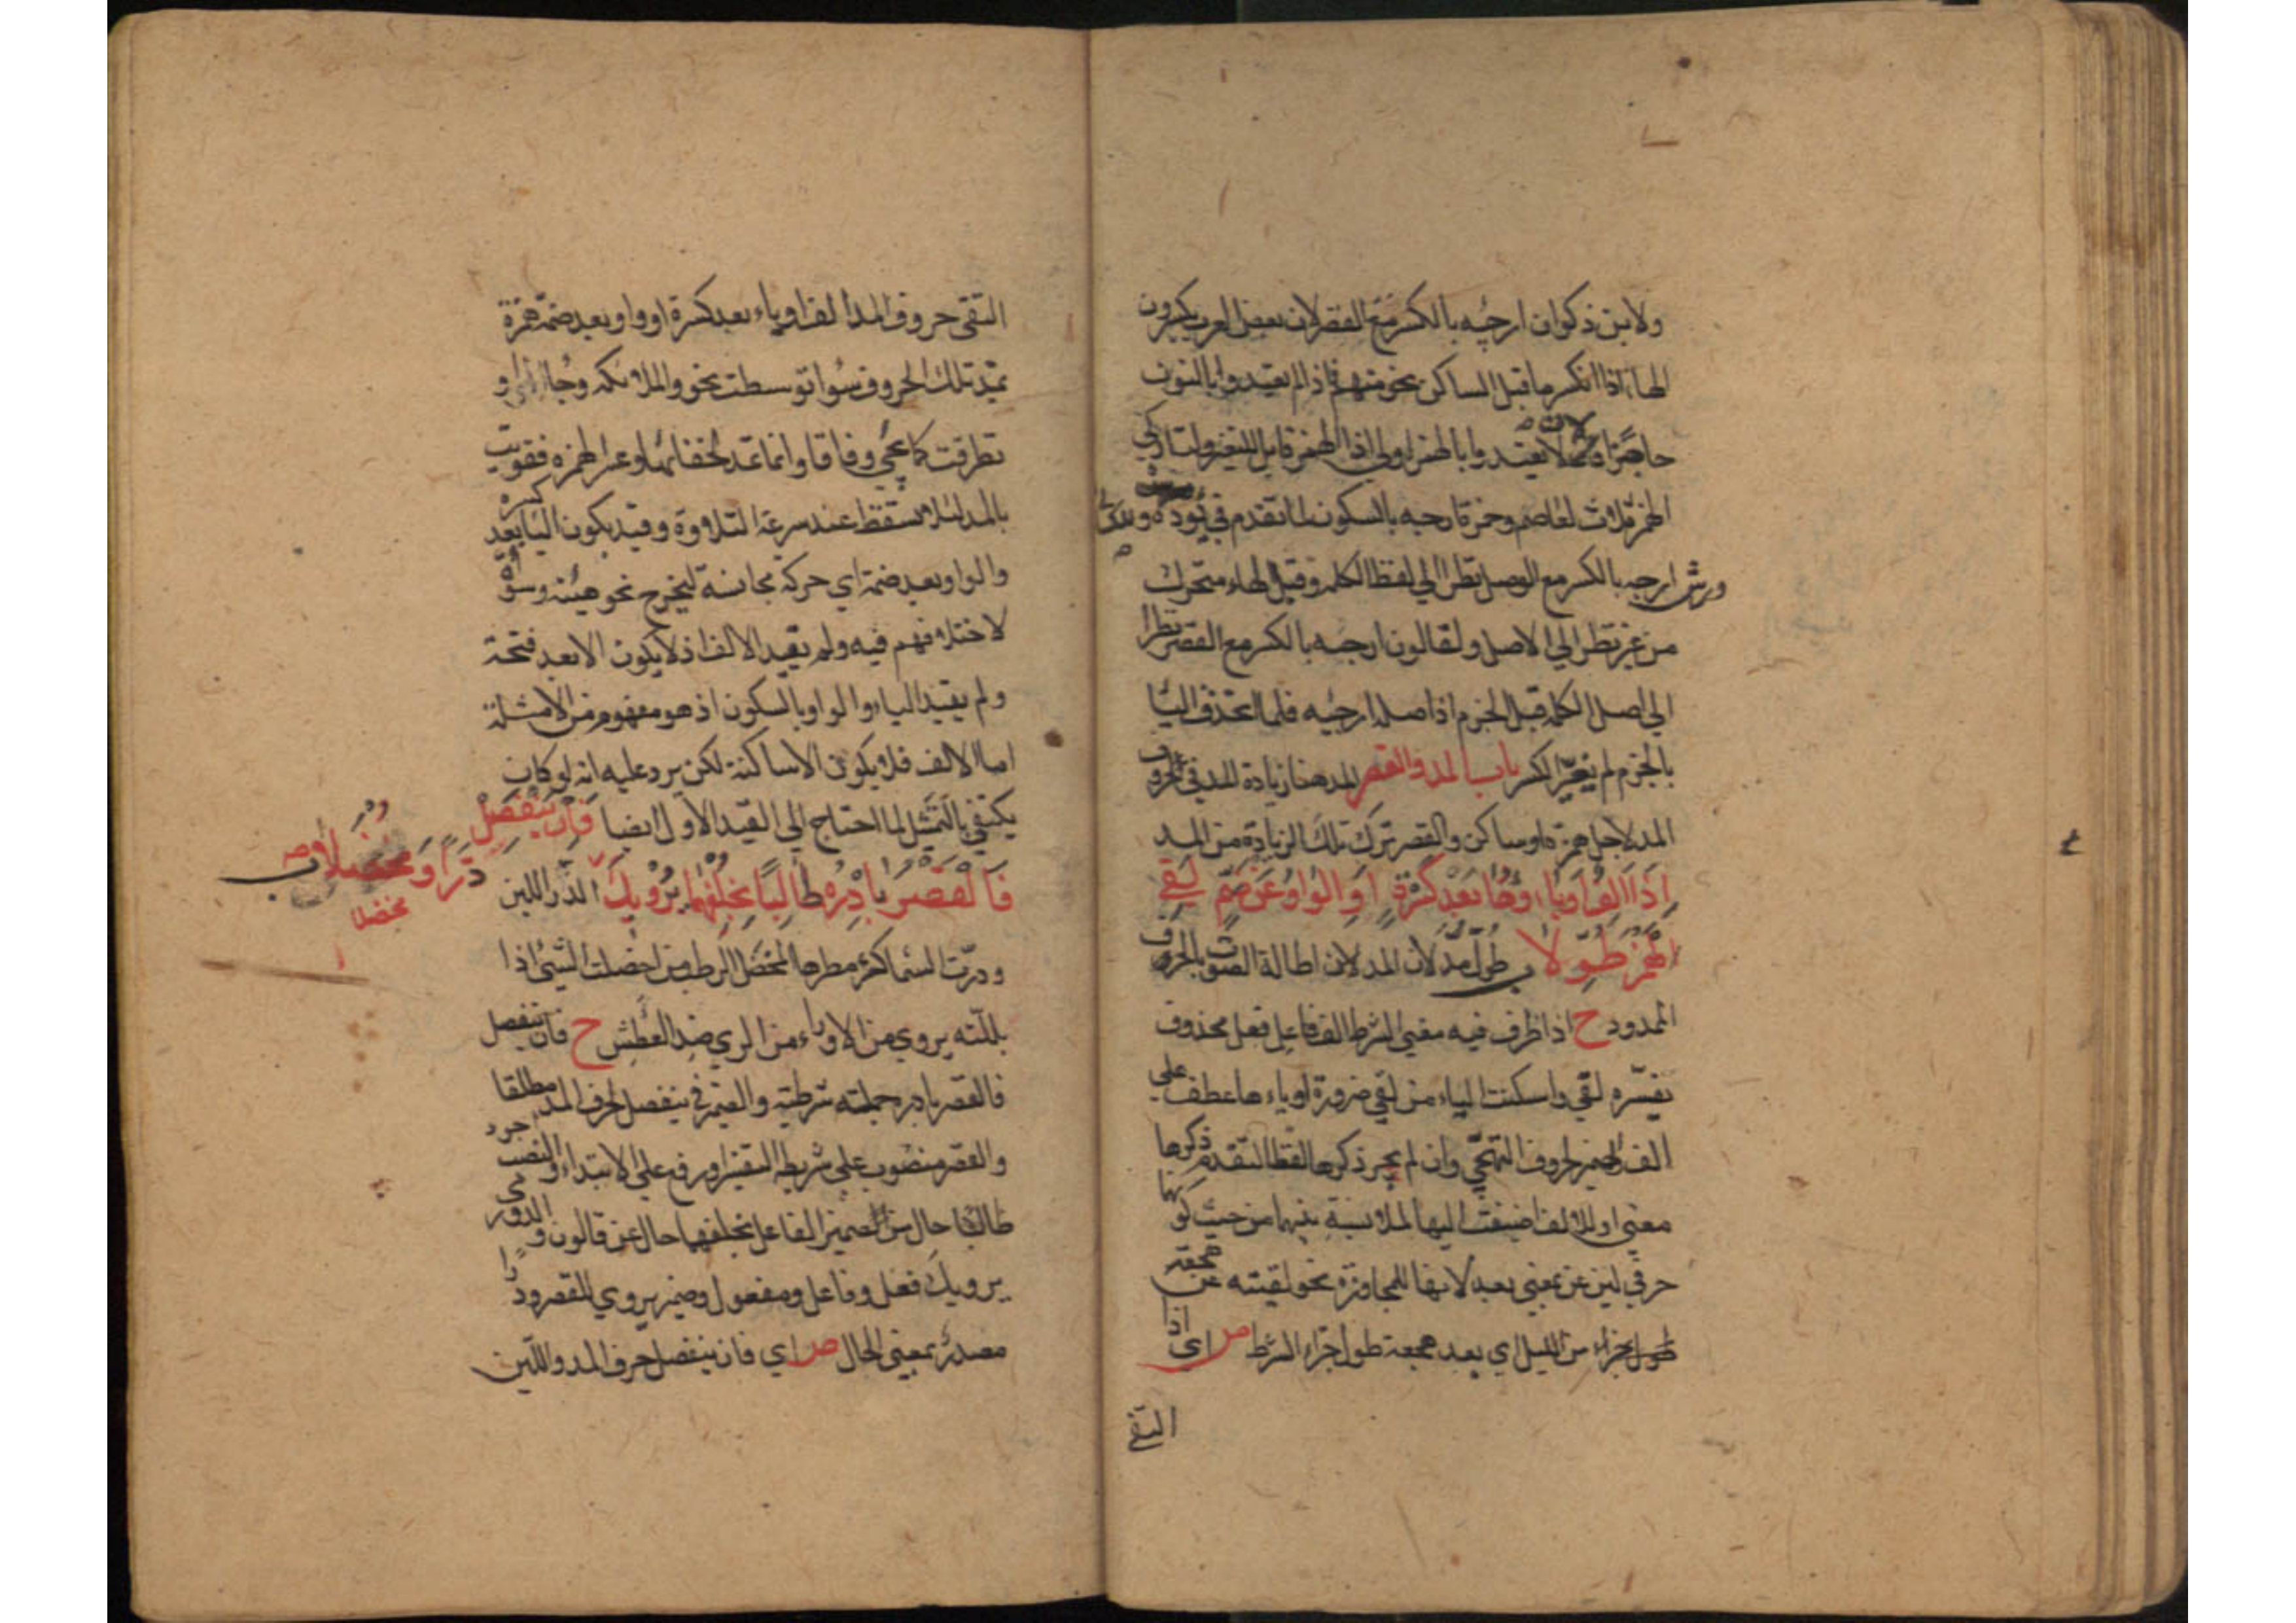 ولابن ذكوان ارجئه بالكسر مع القصر لان بعض العرب يكسرون
الهاء اذا انكسر ما قبل الساكن نحو منهم فاذا لم يعتدوا بالنون
حاجزا فلان لا يعتدوا بالهمز اولى اذ الهمز قابل للتغير
الهمز ثلاث لعاصم وحمزة ارجه بالسكون لما تقدم في نوده و
ورش ارجه بالكسر مع الوصل نظرا الي لفظ الكلمة وقبل الهاء متحرك
من غير نظر الي الاصل ولقالون ارجه بالكسر مع القصر نظرا
الي اصل الكلمة قبل الجزم اذ اصله ارجيه فلما انحذف اليا
بالجزم لم يتغير الكسر باب المد والقصر المد هنا زيادة المد في حروف
المد لاجل همزة او ساكن والقصر ترك تلك الزيادة من المد
اِذَا اَلِفٌ اَوْ يَاؤُهَا بَعْدَ كَسْرَةٍ اَوِ الْوَاوُ عَنْ ضَمٍّ لَقِي
الْهَمْزَ طُوِّلَا ب طول مد لان المد لان اطالة الصوت بالحرف
الممدود ح اذا ظرف فيه معني الشرط الف فاعل فعل محذوف
يفسره لقي واسكنت الياء من لقي ضرورة او ياءها عطف علي
الف والضمير لحروف التهجي وان لم يجر ذكرها لفظا لتقدم ذكرها
معني او للالف اضيفت اليها لملابسة بينهما من حيث كونهما
حرفي لين عن بمعني بعد لانها للمجاوزة نحو لقيته عن هجعة
من الليل اي بعد هجعة طول جزاء الشرط ص اي اذا
التقي
التقي حروف المد الف او ياء بعد كسرة او واو بعد ضمة همزة
تمد تلك الحروف سوا توسطت نحو والملائكة و
تطرفت كما عجمي وفاقا وانما تمد لخفائها وعسر الهمزة فقويت
بالمد لئلا تسقط عند سرعة التلاوة وقيد بكون اليا بعد كسرة
والواو بعد ضمة اي حركة مجانسة ليخرج نحو هيئة وسوْأة
لاختلافهم فيه ولم يقيد الالف اذ لا يكون الا بعد فتحة
ولم يقيد الياء والواو بالسكون اذ هو مفهوم من الامثلة
اما الالف فلا يكون الا ساكنة لكن يرد عليه انه لو كان
يكتفي بالتمثيل لما احتاج الي القيد الاول ايضا فَاِنْ يَنْفَصِلْ
فَالْقَصْرَ بَادِرْهُ طَالِبًا بِخُلْفِهِمَا يُرْوِيكَ دَرًّا وَمُخْضَلَا ب الدر اللبن
مخضلا
ودرت السماء كثر مطرها المخضل الرطب من اخضلت الشئ اذا
بللته يروي من الارواء من الري ضد العطش ح فان ينفصل
فالقصر بادره جملته شرطية والضمير في ينفصل لحرف المد مطلقا
والقصر منصوب علي شريطة التفسير او رفع علي الابتداء والنصب اجود
طالبا حال من الضمير الفاعل بخلفهما حال عن قالون والدوري
يرويك فعل وفاعل ومفعول وضمير يروي للقصر ودرا
مصدر بمعني الحال ص اي فان ينفصل حرف المد واللين